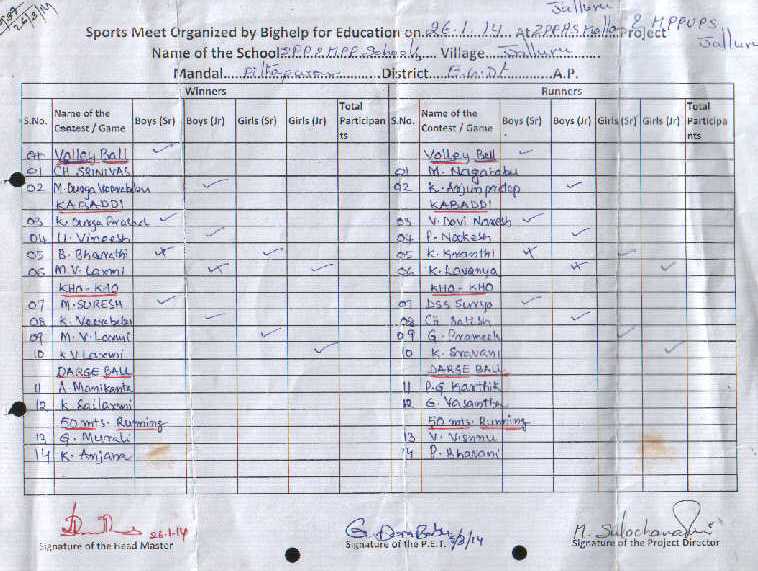 Jalluru
Sports Meet Organized by Bighelp for Education on 26.1.14 At ZPPPS Malla Project & MPPUPS
Jalluru
Name of the School ZPP & MPP Schools Village Jalluru
Mandal Pithapuram District E.G.Dt A.P.
Winners Runners
S.No. Name of the Contest / Game Boys (Sr) Boys (Jr) Girls (Sr) Girls (Jr) Total Participants S.No. Name of the Contest / Game Boys (Sr) Boys (Jr) Girls (Sr) Girls (Jr) Total Participants
Volley Ball ✓ Volley Ball ✓
01 CH SRINIVAS 01 M. Nagababu
02 M. Durga Veerababu ✓ 02 K. Arjun ✓
KABADDI KABADDI
03 K. Durga Prasad ✓ 03 V. Devi Naresh ✓
04 U. Vineesh ✓ 04 P. Nookesh ✓
05 B. Bharathi ✓ 05 K. Kranthi ✓
06 M.V. Laxmi ✓ 06 K. Lavanya ✓
KHO-KHO KHO-KHO
07 M. SURESH ✓ 07 DSS Surya ✓
08 K. Veerababu ✓ 08 CH Satish ✓
09 M. V. Laxmi ✓ 09 G. Prameela ✓
10 K V Laxmi ✓ 10 K. Sravani ✓
DARGE BALL DARGE BALL
11 A. Manikanta 11 P.G Karthik
12 K Sailaxmi 12 G. Vasantha
50 mts. Running 50 mts. Running
13 G. Murali 13 V. Vishnu
14 K. Anjana 14 P. Bhavani
26.1.14 G. Dora Babu M. Sulochana
Signature of the Head Master Signature of the P.E.T. Signature of the Project Director